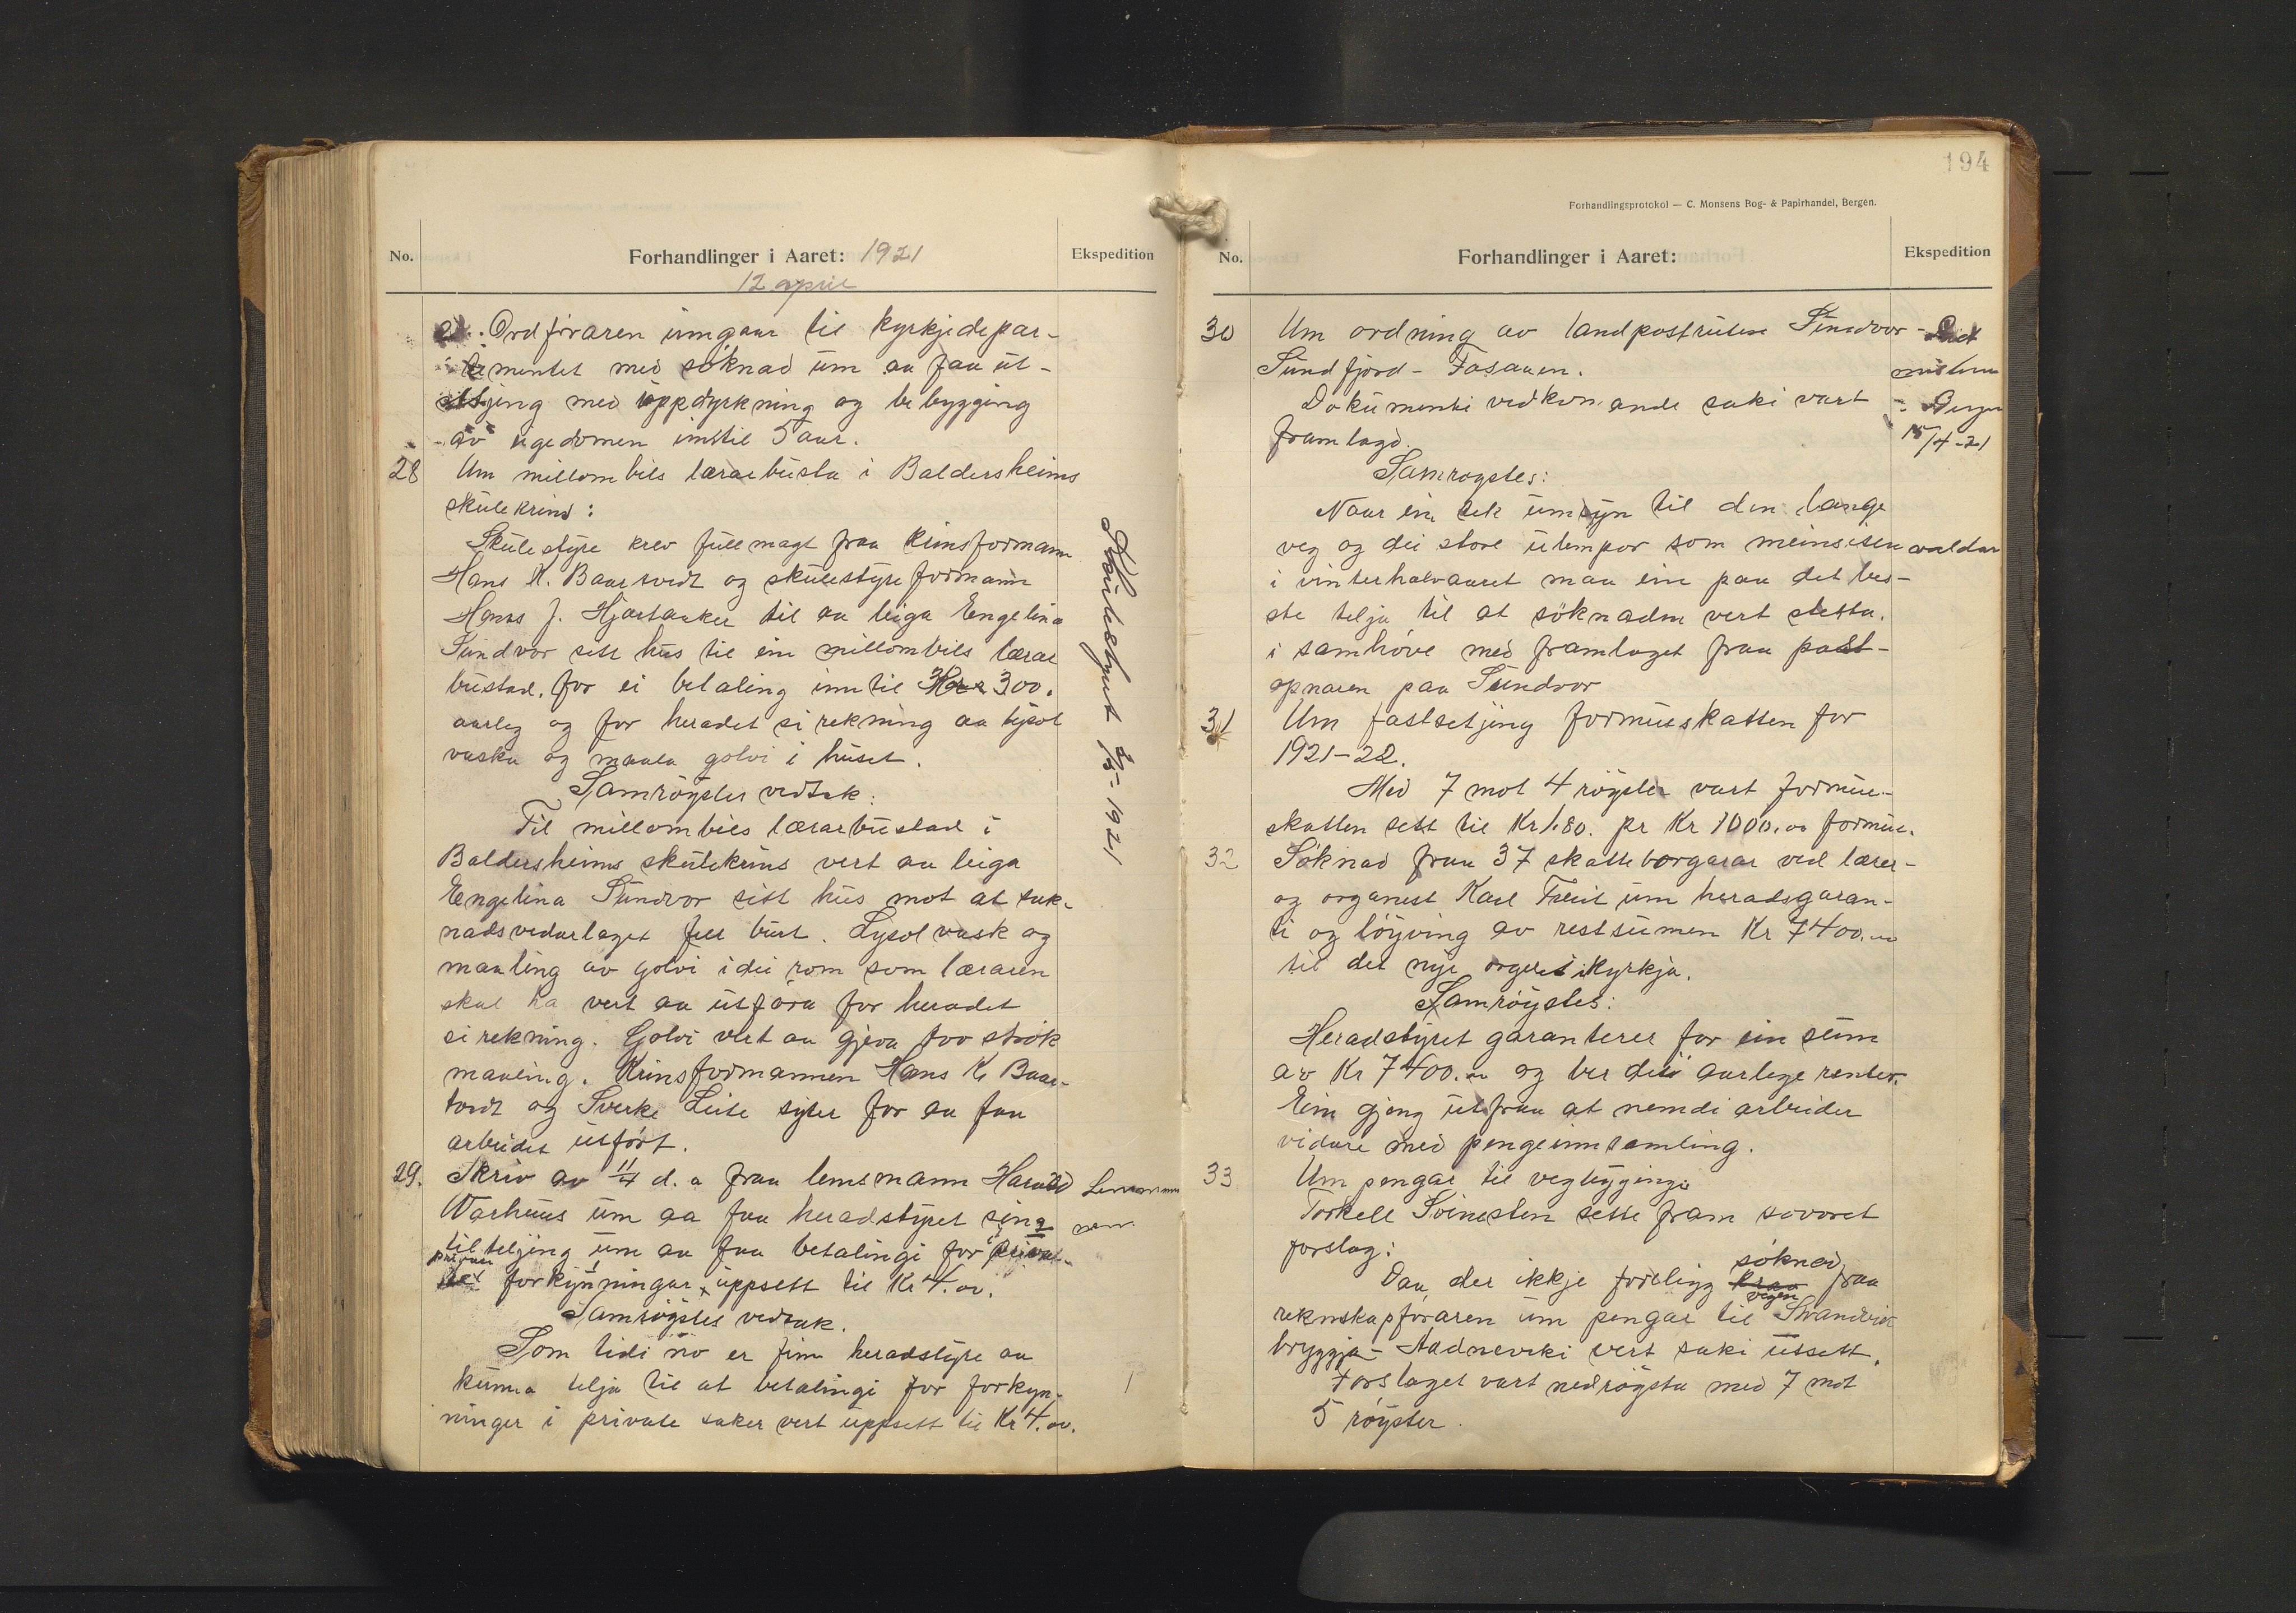 No.
Forhandlinger i Aaret: 1921
12 april
Ekspedition
Ordføraren umgaar til kyrkjedepar-
tementet med søknad um aa faa ut-
setjing med uppdyrkning og bebygging
av egedomen inntil 5 aar.
28 Um millombils lærarbusta i Baldersheims
skulekrins:
Skulestyre krev fullmagt fraa krinsformann
Hans K. Baartvedt og skulestyreformann
Hans J. Hjartaaker til aa leiga Engelina
Sundvor sitt hus til ein millombils lærar
bustad, for ei betaling inntil 300.
aarleg og for heradet si rekning aa lysol
vaska og maala golvi i huset.
Samrøystes vedtak:
Til millombils lærarbustad i
Baldersheims skulekrins vert aa leiga
Engelina Sundvor sitt hus mot at sak-
nadsvedarlaget fell burt. Lysol vask og
maaling av golvi i dei rom som læraren
skal ha vert aa utføra for heradet
si rekning. Golvi vert aa gjeva tvo strok
maaling. Krinsformannen Hans K. Baar-
tvedt og Sverke Leite syter for aa faa
arbeidet utført.
Skulestyret 3/5-1921
29. Skriv av 11/4 d.a fraa lensmann Harald
Varhaus um aa faa heradstyret sin
tilteljing um aa faa betalingi for
private
forkynningar uppsett til Kr 4.00.
Samrøystes vedtak.
Som tidi no er finn heradstyre aa
kunna telja til at betalingi for forkyn-
ninger i private saker vert uppsett til Kr 4.00.
Lensmannen
194
Forhandlingsprotokol — C. Monsens Bog- & Papirhandel, Bergen.
No.
Forhandlinger i Aaret:
Ekspedition
30 Um ordning av landpostruten Sundvor -
Sundfjord - Fosaaen.
Dokumenti vedkomande saki vart
framlagd.
Bergen
15/4-21
Samrøystes:
Naar ein tek umsyn til den lange
veg og dei store ulempor som meinsisen valdar
i vinterhalvaaret maa ein paa det bes-
te telja til at søknaden vert støtta.
i samhøve med framlaget fraa post-
opnaren paa Sundvor
31 Um fastsetjing formueskatten for
1921-22.
Med 7 mot 4 røyster vart formue-
skatten sett til Kr 1.80. pr Kr 1000.00 formue.
32 Søknad fraa 37 skatteborgarar ved lærer-
og organist Karl um heradsgaran-
ti og løyving av restsumen Kr 7400.00
til det nye orgelet i kyrkja.
Samrøystes:
Heradstyret garanterer for ein sum
av Kr 7400.00 og ber dei aarlege renter.
Ein gjeng utifraa at nemdi arbeider
vidare med pengeinnsamling.
33 Um pengar til vegbygginga
Torkell Svinesten sette fram sovoret
forslag:
Daa der ikkje foreligg søknad fraa
rekneskapføraren um pengar til Strandvik
bryggja - Aadneviki vegen vert saki utsett.
Forslaget vart nedrøysta med 7 mot
5 røyster.